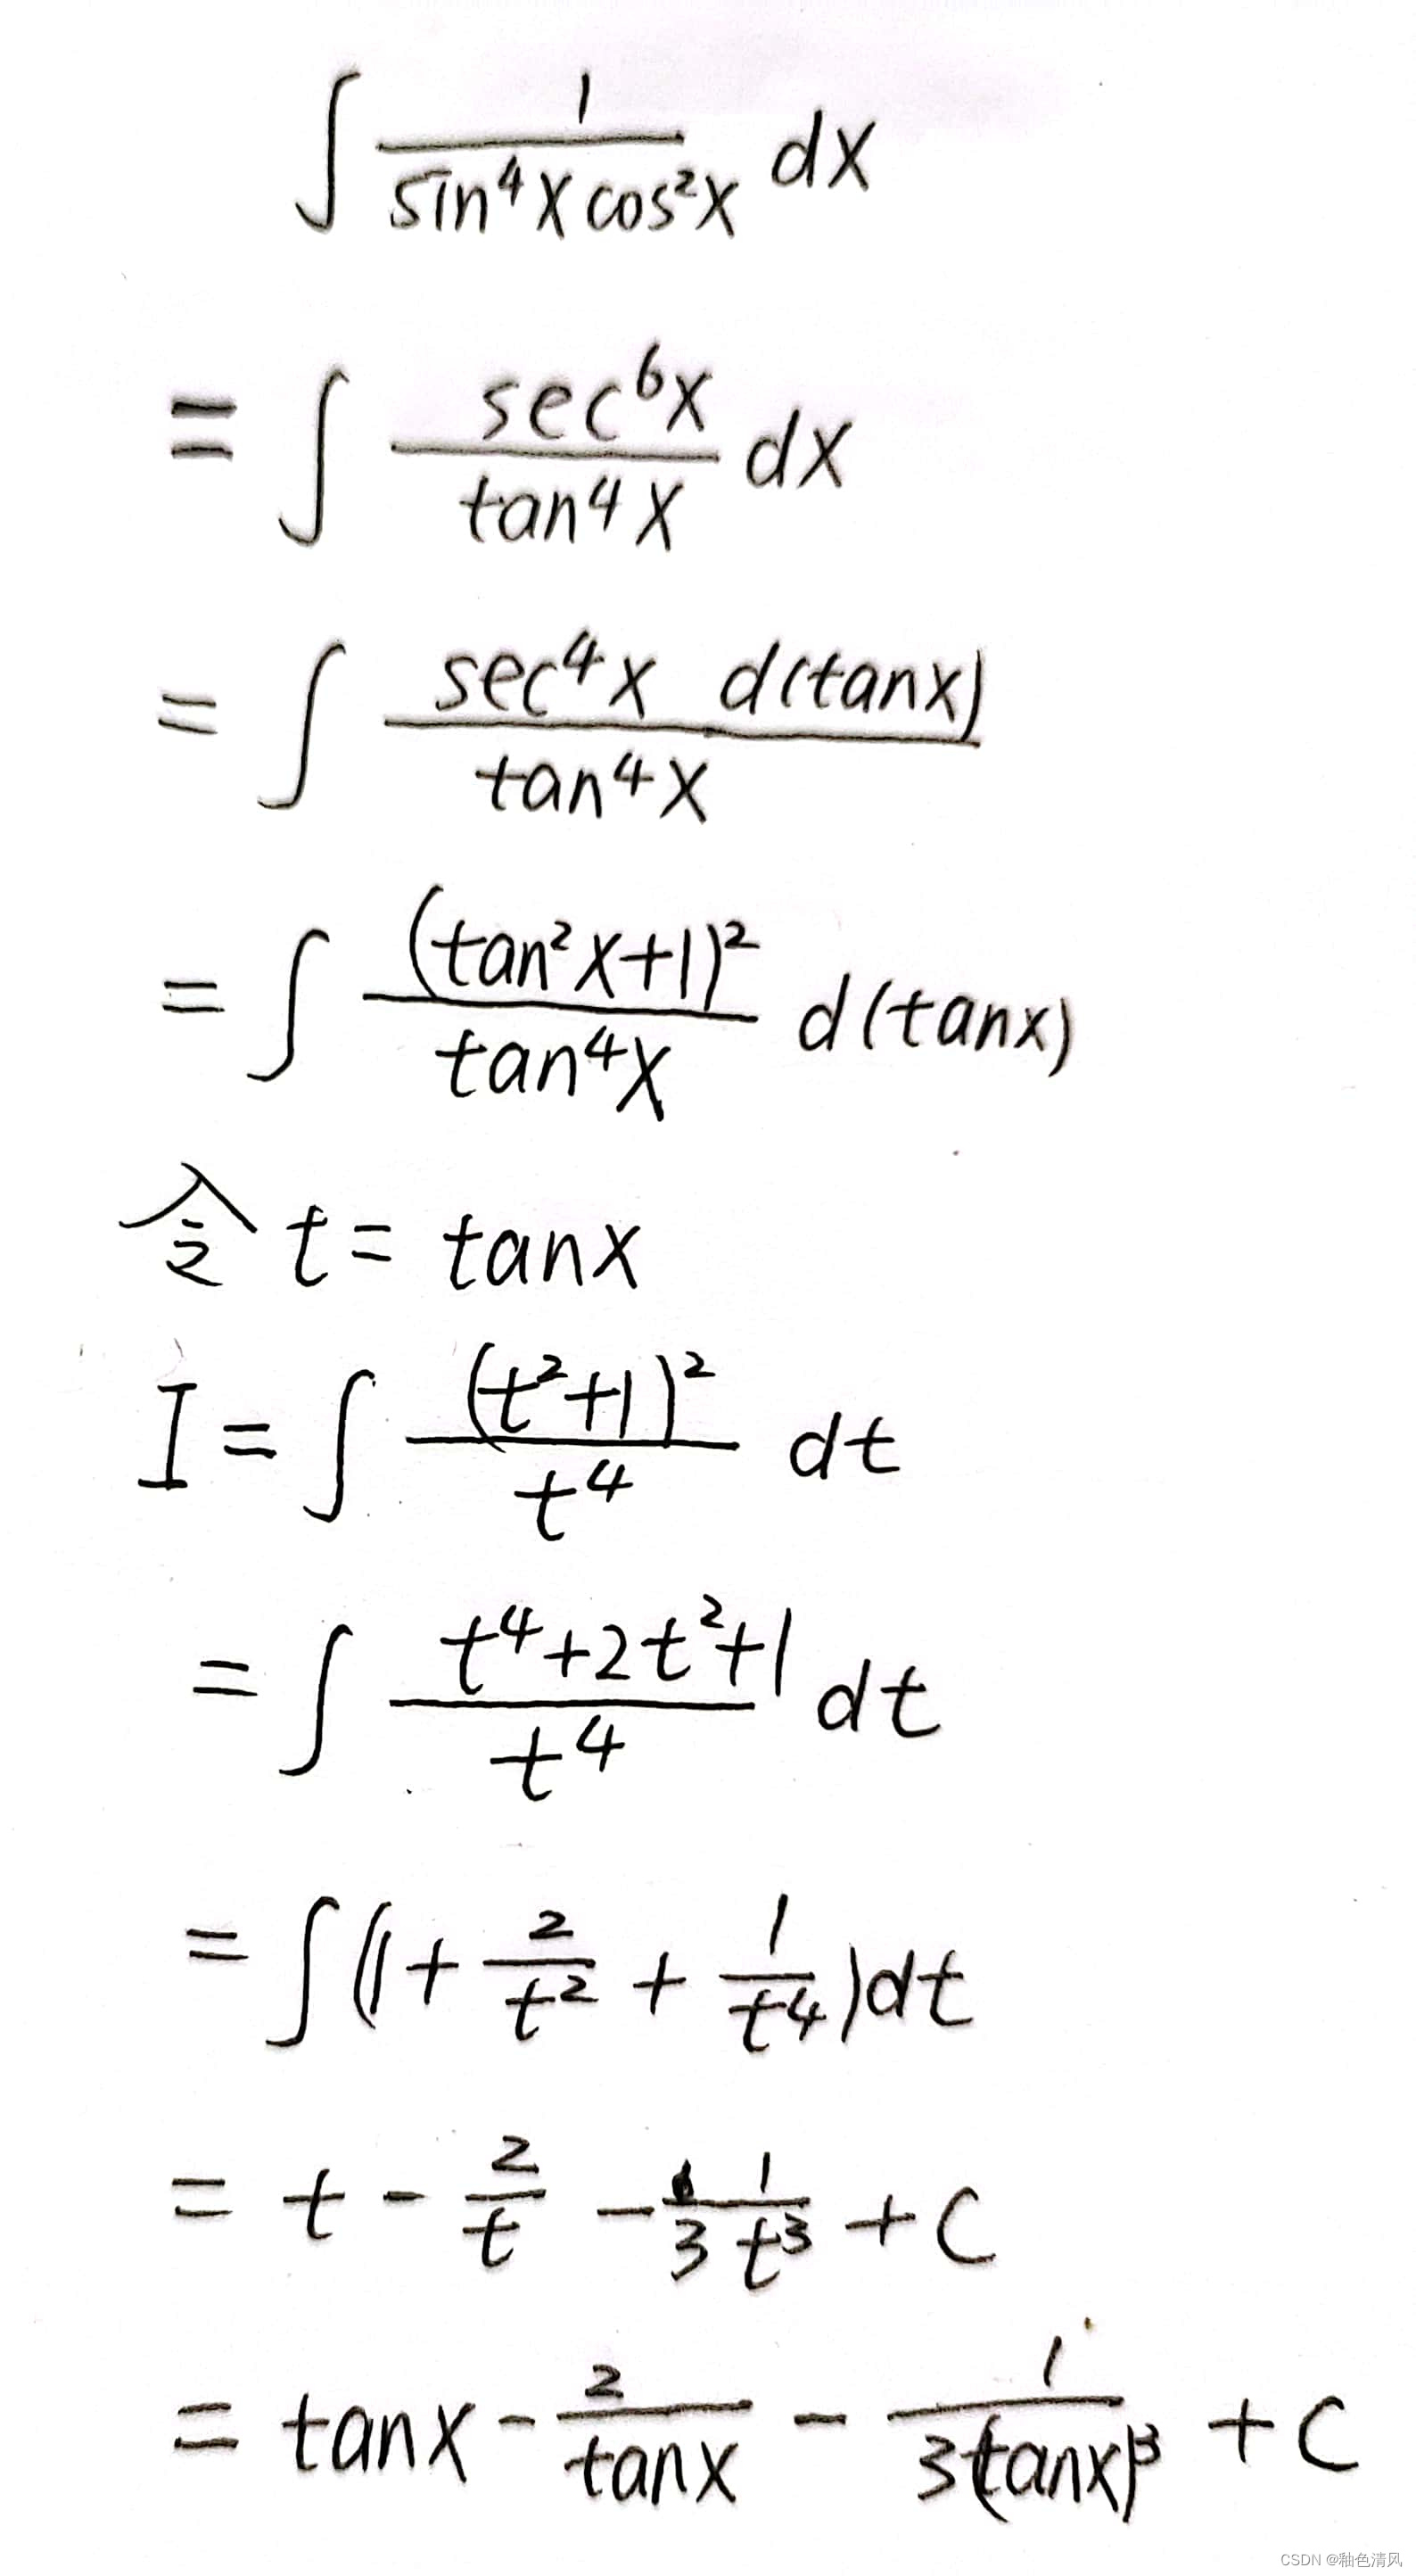 ∫ 1/(sin⁴x cos²x) dx
= ∫ sec⁶x/tan⁴x dx
= ∫ sec⁴x d(tanx)/tan⁴x
= ∫ (tan²x+1)²/tan⁴x d(tanx)
令 t = tanx
I = ∫ (t²+1)²/t⁴ dt
= ∫ (t⁴+2t²+1)/t⁴ dt
= ∫(1 + 2/t² + 1/t⁴)dt
= t - 2/t - 1/3 1/t³ + C
= tanx - 2/tanx - 1/3(tanx)³ + C
CSDN @釉色清风